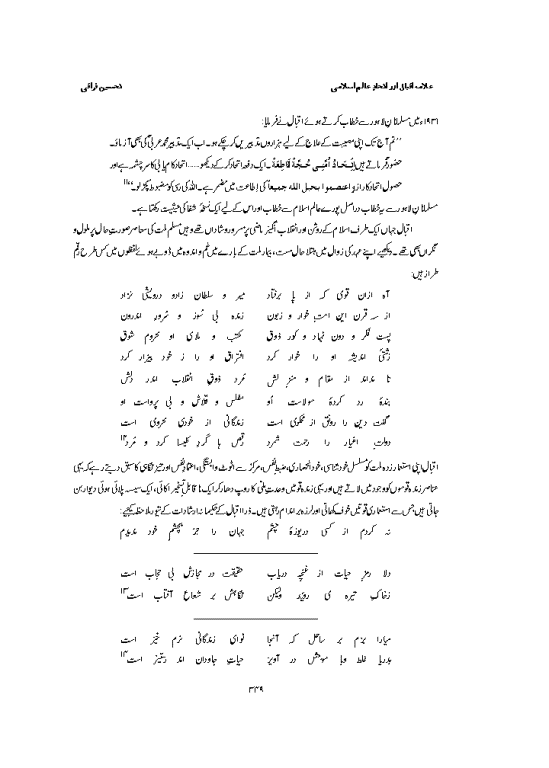 علامہ اقبال اور اتحادِ عالم اسلامی
تحسین فراقی
۱۹۳۱ء میں مسلمانانِ لاہور سے خطاب کرتے ہوئے اقبال نے فرمایا:
’’تم آج تک اپنی مصیبت کے علاج کے لیے ہزاروں تدبیریں کر چکے ہو۔ اب ایک تدبیر محمد عربیؐ کی بھی آزماؤ۔
حضورؐ فرماتے ہیں اِتِّحَادُ اُمَّتِی حُجَّۃٌ قَاطِعَۃٌ۔ ایک دفعہ اتحاد کر کے دیکھو ...... اتحاد کامیابی کا سرچشمہ ہے اور
حصولِ اتحاد کا راز واعتصموا بحبل اللہ جمیعاً کی اطاعت میں مضمر ہے۔ اللہ کی رسی کو مضبوط پکڑ لو‘‘۱۱
مسلمانانِ لاہور سے یہ خطاب دراصل پورے عالمِ اسلام سے خطاب اور اس کے لیے ایک نسخۂ شفا کی حیثیت رکھتا ہے۔
اقبال جہاں ایک طرف اسلام کے روشن اور انقلاب انگیز ماضی پر مسرور و شاداں تھے وہیں مسلم ملت کی معاصر صورتِ حال پر ملول و
نگراں بھی تھے۔ دیکھیے اپنے عہد کی زوال میں مبتلا حال مست، بیمار ملت کے بارے میں غم و اندوہ میں ڈوبے ہوئے لفظوں میں کس طرح رقم
طراز ہیں:
آہ ازاں قومی کہ از پا برفتاد میر و سلطان زاد و درویشی نژاد
از سہ قرن این امت خوار و زبون زندہ بی سوز و سرور اندرون
پست فکر و دون نہاد و کور ذوق مکتب و ملای او محروم شوق
زشتی اندیشہ او را خوار کرد افتراق او را ز خود بیزار کرد
تا نداند از مقام و منزلش مُرد ذوقِ انقلاب اندر دلش
بندۂ رد کردۂ مولاست او مفلس و قلاش و بی پرواست او
گفت دین را رونق از محکومی است زندگانی از خودی محرومی است
دولتِ اغیار را رحمت شمرد رقص ہا گردِ کلیسا کرد و مُرد۱۲
اقبال اپنی استعمار زدہ ملت کو مسلسل خود شناسی، خود انحصاری، ضبطِ نفس، مرکز سے اٹوٹ وابستگی، اعتمادِ نفس اور تیز نگاہی کا سبق دیتے رہے کہ یہی
عناصر زندہ قوموں کو وجود میں لاتے ہیں اور یہی زندہ قومیں وحدتِ ملی کا روپ دھار کر ایک ناقابلِ تسخیر اکائی، ایک سیسہ پلائی ہوئی دیوار بن
جاتی ہیں جس سے استعماری قوتیں خوف کھاتی اور لرزہ بر اندام رہتی ہیں۔ ذرا اقبال کے حکیمانہ ارشادات کے تیور ملاحظہ کیجیے:
نہ کردم از کسی دریوزۂ چشم جہان را جز بچشمِ خود ندیدم
دلا رمزِ حیات از غنچہ دریاب حقیقت در مجازش بی حجاب است
ز خاکِ تیرہ می روید ولیکن نگاہش بر شعاعِ آفتاب است۱۳
میارا بزم بر ساحل کہ آنجا نوای زندگانی نرم خیز است
بدریا غلط و با موجش در آویز حیاتِ جاودان اندر ستیز است۱۴
۳۴۹